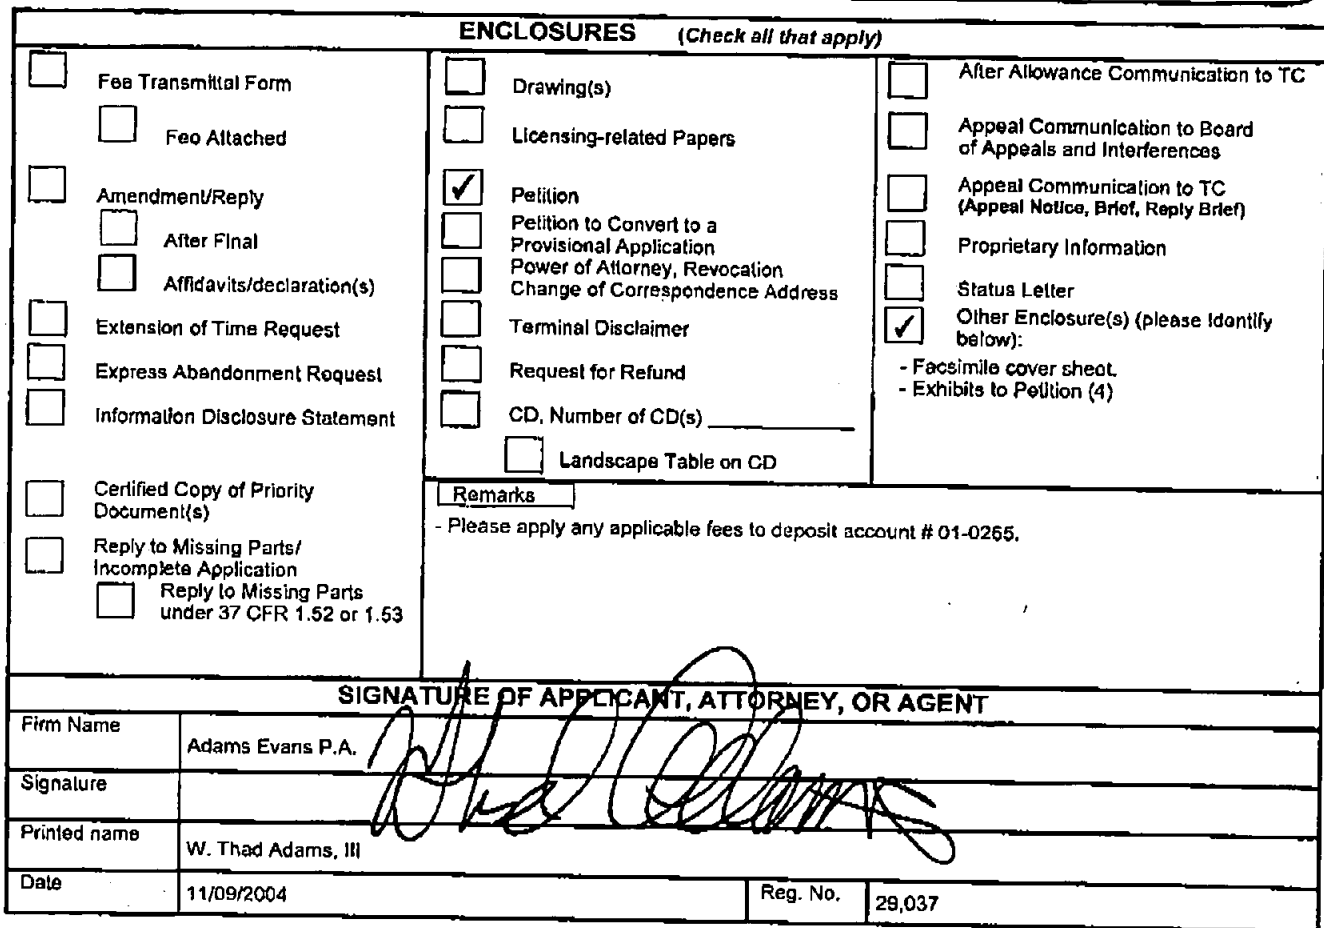 ENCLOSURES (Check all that apply)
Fee Transmittal Form
Fee Attached
Amendment/Reply
After Final
Affidavits/declaration(s)
Extension of Time Request
Express Abandonment Request
Information Disclosure Statement
Certified Copy of Priority
Document(s)
Reply to Missing Parts/
Incomplete Application
Reply to Missing Parts
under 37 CFR 1.52 or 1.53
Drawing(s)
Licensing-related Papers
✓ Petition
Petition to Convert to a
Provisional Application
Power of Attorney, Revocation
Change of Correspondence Address
Terminal Disclaimer
Request for Refund
CD, Number of CD(s)
Landscape Table on CD
After Allowance Communication to TC
Appeal Communication to Board
of Appeals and Interferences
Appeal Communication to TC
(Appeal Notice, Brief, Reply Brief)
Proprietary Information
Status Letter
✓ Other Enclosure(s) (please identify
below):
- Facsimile cover sheet.
- Exhibits to Petition (4)
Remarks
- Please apply any applicable fees to deposit account # 01-0265.
SIGNATURE OF APPLICANT, ATTORNEY, OR AGENT
Firm Name
Adams Evans P.A.
Signature
W Thad Adams
Printed name
W. Thad Adams, III
Date
11/09/2004
Reg. No.
29,037